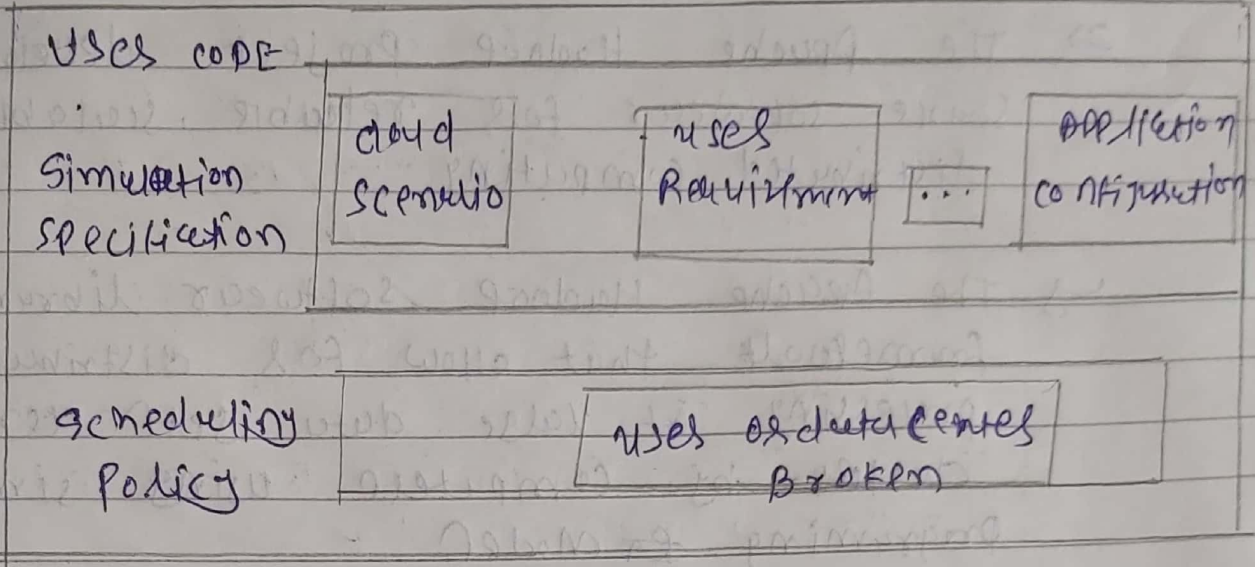 Uses CODE
Simulation
specification
cloud
scenario
uses
Requirment
...
Application
configuration
scheduling
policy
uses or data center
Broken